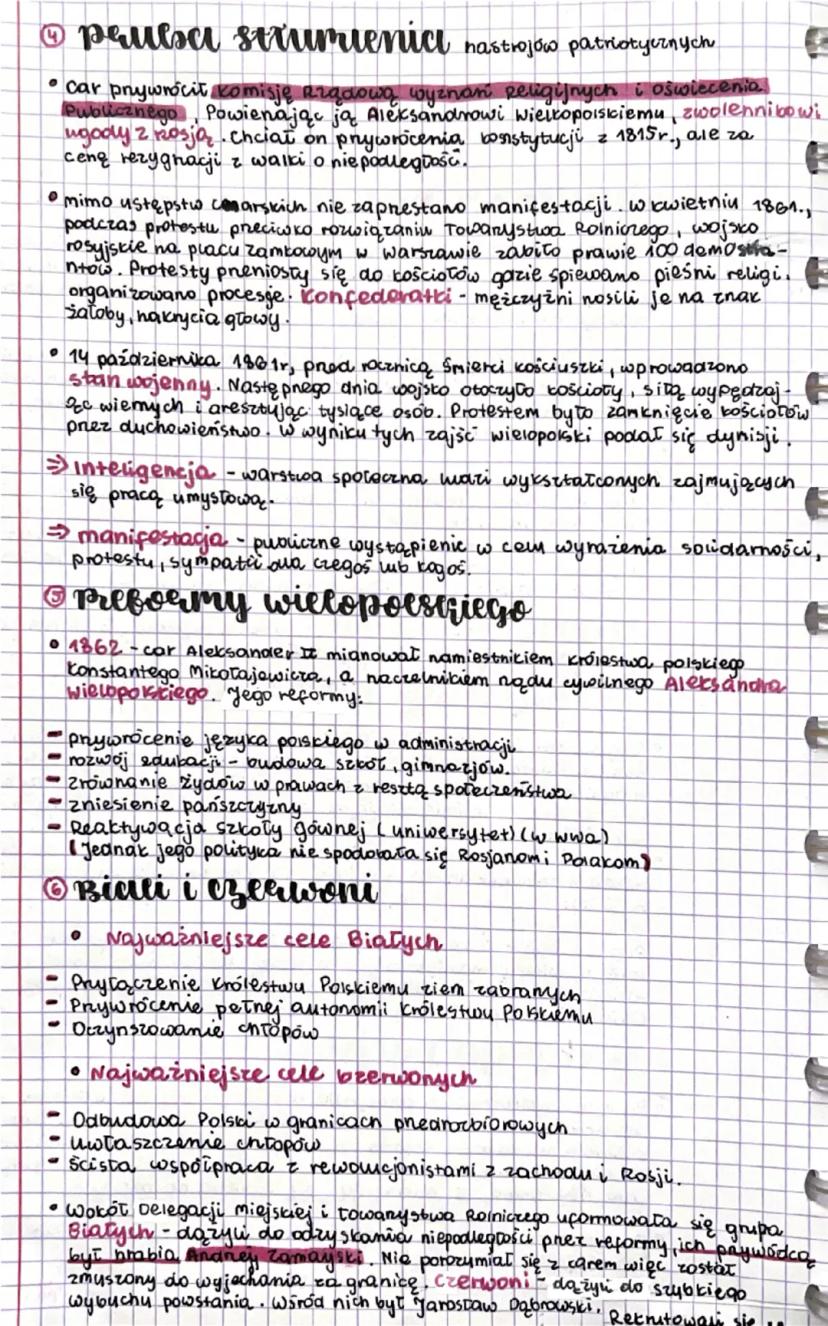 ④ próba stłumienia nastrojów patriotycznych
• car przywrócił komisję Rządową wyznań Religijnych i oświecenia
Publicznego, Powierzając ją Aleksandrowi Wielkopolskiemu, zwolennikowi
ugody z Rosją. Chciał on przywrócenia konstytucji z 1815r., ale za
cenę rezygnacji z walki o niepodległość.
• mimo ustępstw carskich nie zaprzestano manifestacji. w kwietniu 1861.,
podczas protestu przeciwko rozwiązaniu Towarzystwa Rolniczego, wojsko
rosyjskie na placu zamkowym w warszawie zabiło prawie 100 demostra-
ntów. Protesty przeniosły się do kościołów gdzie śpiewano pieśni religi.
organizowano procesje. Konfederatki - mężczyźni nosili je na znak
żałoby, nakrycia głowy.
• 14 października 1861r, przed rocznicą śmierci kościuszki, wprowadzono
stan wojenny. Następnego dnia wojsko otoczyło kościoły, siłą wypędzaj-
ąc wiernych i aresztując tysiące osób. Protestem było zamknięcie kościołów
przez duchowieństwo. W wyniku tych zajść wielopolski podał się dymisji.
⇒ inteligencja - warstwa społeczna ludzi wykształconych zajmujących
się pracą umysłową.
⇒ manifestacja - publiczne wystąpienie w celu wyrażenia solidarności,
protestu, sympatii dla czegoś lub kogoś.
⑤ Reformy wielopolskiego
• 1862 - car Aleksander II mianował namiestnikiem królestwa polskiego
Konstantego Mikołajewicza, a naczelnikiem rządu cywilnego Aleksandra
wielopolskiego. Jego reformy:
- przywrócenie języka polskiego w administracji
- rozwój edukacji - budowa szkół, gimnazjów.
- zrównanie żydów w prawach z resztą społeczeństwa
- zniesienie pańszczyzny
- Reaktywacja szkoły gównej (uniwersytet) (w wwa)
(Jednak jego polityka nie spodobała się Rosjanom i Polakom)
⑥ Biali i czerwoni
• Najważniejsze cele Białych
- Przyłączenie królestwu Polskiemu ziem zabranych
- Przywrócenie pełnej autonomii królestwu Polskiemu
- Oczynszowanie chłopów
• Najważniejsze cele czerwonych
- Odbudowa Polski w granicach przedrozbiorowych
- uwłaszczenie chłopów
- ścisła współpraca z rewolucjonistami z zachodu i Rosji.
• wokół Delegacji miejskiej i towarzystwa Rolniczego uformowała się grupa
Białych - dążyli do odzyskania niepodległości przez reformy, ich przywódcą
był hrabia Andrzej Zamayski. Nie porozumiał się z carem więc został
zmuszony do wyjechania za granicę. Czerwoni - dążyli do szybkiego
wybuchu powstania. Wśród nich był Jarosław Dąbrowski.
Rekrutowali się